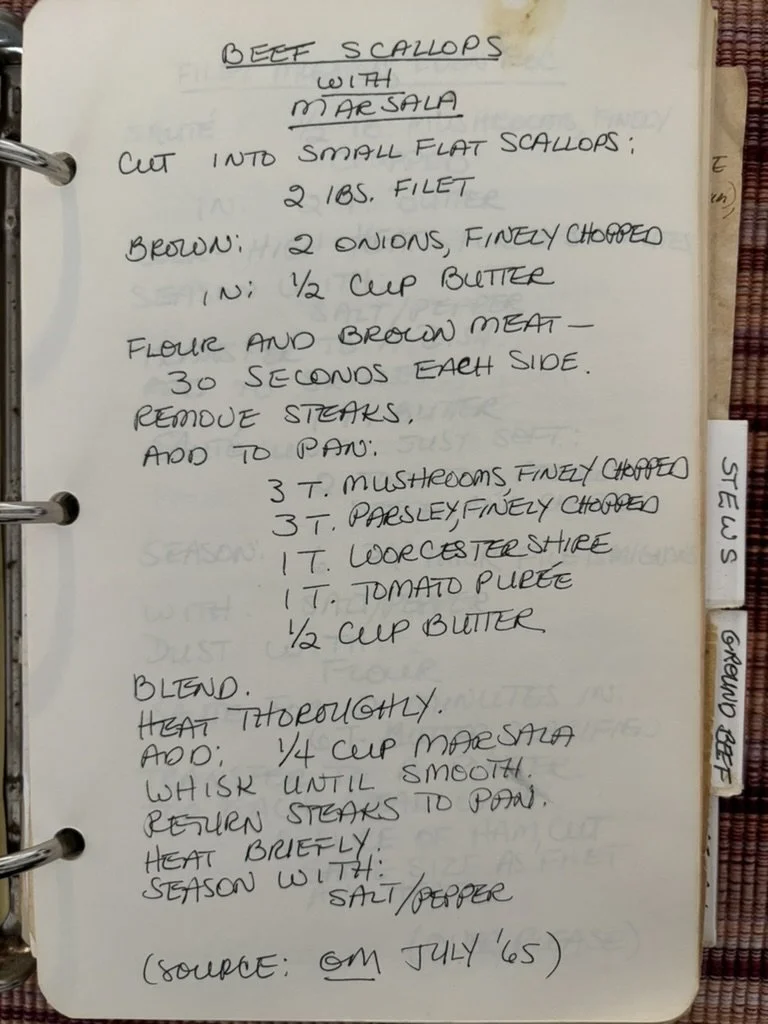 BEEF SCALLOPS
WITH
MARSALA
CUT INTO SMALL FLAT SCALLOPS:
2 lBS. FILET
BROWN: 2 ONIONS, FINELY CHOPPED
IN: ½ CUP BUTTER
FLOUR AND BROWN MEAT—
30 SECONDS EACH SIDE.
REMOVE STEAKS.
ADD TO PAN:
3 T. MUSHROOMS, FINELY CHOPPED
3 T. PARSLEY, FINELY CHOPPED
1 T. WORCESTERSHIRE
1 T. TOMATO PURÉE
½ CUP BUTTER
BLEND.
HEAT THOROUGHLY.
ADD: ¼ CUP MARSALA
WHISK UNTIL SMOOTH.
RETURN STEAKS TO PAN.
HEAT BRIEFLY.
SEASON WITH:
SALT/PEPPER
(SOURCE: GM JULY '65)
STEWS
GROUND BEEF